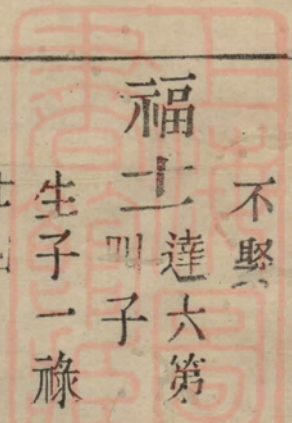 不娶
福十二
達六第
四子
生子一祿